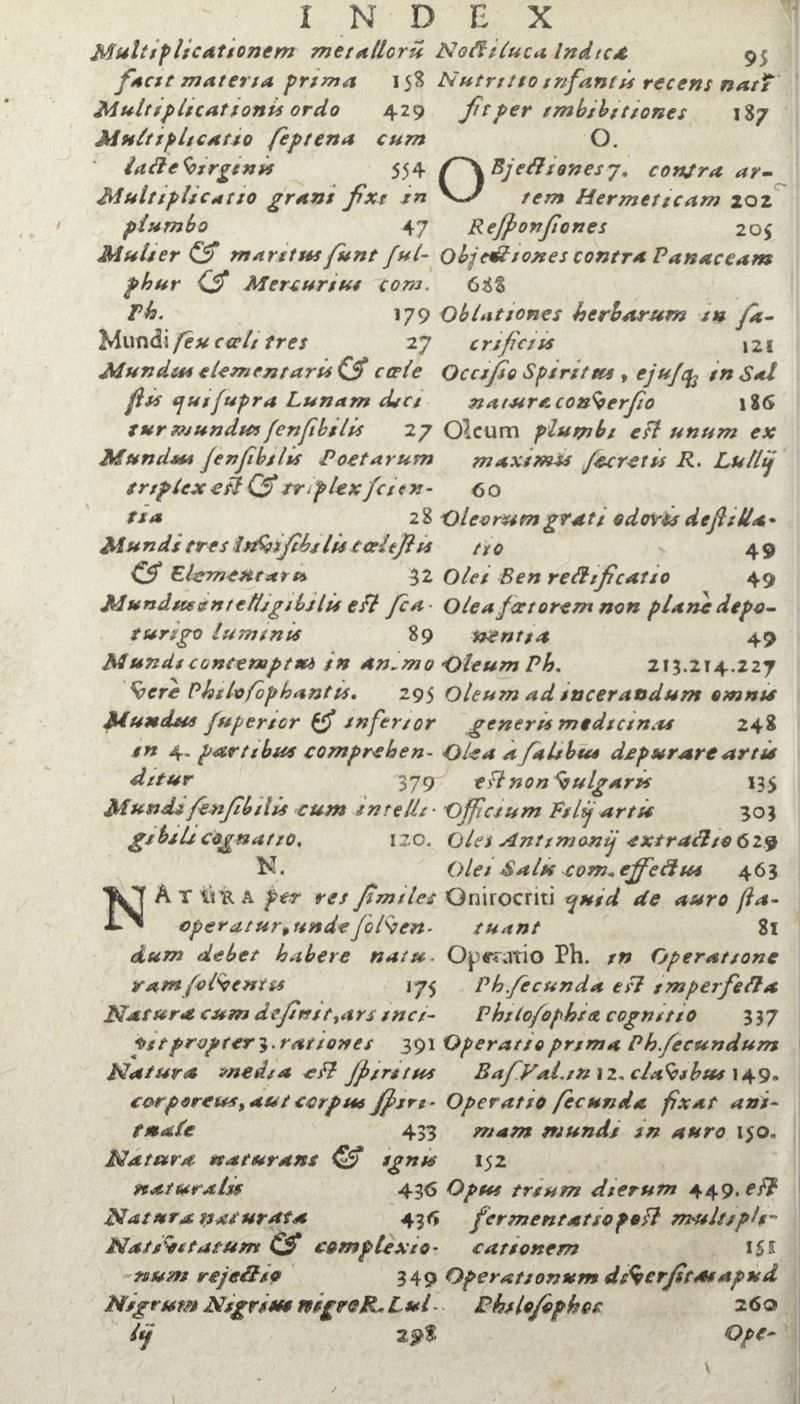 INDEX
Multiplicationem metallorũ
facit materia prima 158
Multiplicationis ordo 429
Multiplicatio ſeptena cum
lacte virginis 554
Multiplicatio grani fixi in
plumbo 47
Mulier & maritus ſunt ſul-
phur & Mercurius com.
Ph. 179
Mundi ſeu cœli tres 27
Mundus elementaris & cœle
ſtis qui ſupra Lunam dici
tur mundus ſenſibilis 27
Mundus ſenſibilis Poetarum
triplex eſt & triplex ſcien-
tia 28
Mundi tres Inviſibilis cœleſtis
& Elementaris 32
Mundus intelligibilis eſt ſca-
turigo luminis 89
Mundi contemptus in animo
verè Philoſophantis. 295
Mundus ſuperior & inferior
in 4. partibus comprehen-
ditur 379
Mundi ſenſibilis cum intelli-
gibili cognatio. 120.
N.
NATURA per res ſimiles
operatur, unde ſolven-
dum debet habere natu-
ram ſolventis 175
Natura cum deſinit, ars inci-
pit propter 3. rationes 391
Natura media eſt ſpiritus
corporeus, aut corpus ſpiri-
tuale 433
Natura naturans & ignis
naturalis 436
Natura naturata 436
Nativitatum & complexio-
num rejectio 349
Nigrum Nigrius nigro R. Lul-
lij 298
Noctiluca Indica 95
Nutritio infantis recens nati
fit per imbibitiones 187
O.
OBjectiones 7. contra ar-
tem Hermeticam 202
Reſponſiones 205
Objectiones contra Panaceam
688
Oblationes herbarum in ſa-
crificiis 121
Occiſio Spiritus, ejuſq; in Sal
naturæ converſio 186
Oleum plumbi eſt unum ex
maximis ſecretis R. Lullij
60
Oleorum grati odoris deſtilla-
tio 49
Olei Ben rectificatio 49
Olea fœtorem non planè depo-
nentia 49
Oleum Ph. 213.214.227
Oleum ad incerandum omnis
generis medicinas 248
Olea à ſalibus depurare artis
eſt non vulgaris 135
Officium Filij artis 303
Olei Antimonij extractio 629
Olei Salis com. effectus 463
Onirocriti quid de auro ſta-
tuant 81
Operatio Ph. in Operatione
Ph. ſecunda eſt imperfecta
Philoſophia cognitio 337
Operatio prima Ph. ſecundum
Baſ. Val. in 12. clavibus 149.
Operatio ſecunda fixat ani-
mam mundi in auro 150.
152
Opus trium dierum 449. eſt
fermentatio poſt multipli-
cationem 151
Operationum diverſitas apud
Philoſophos 260
Ope-